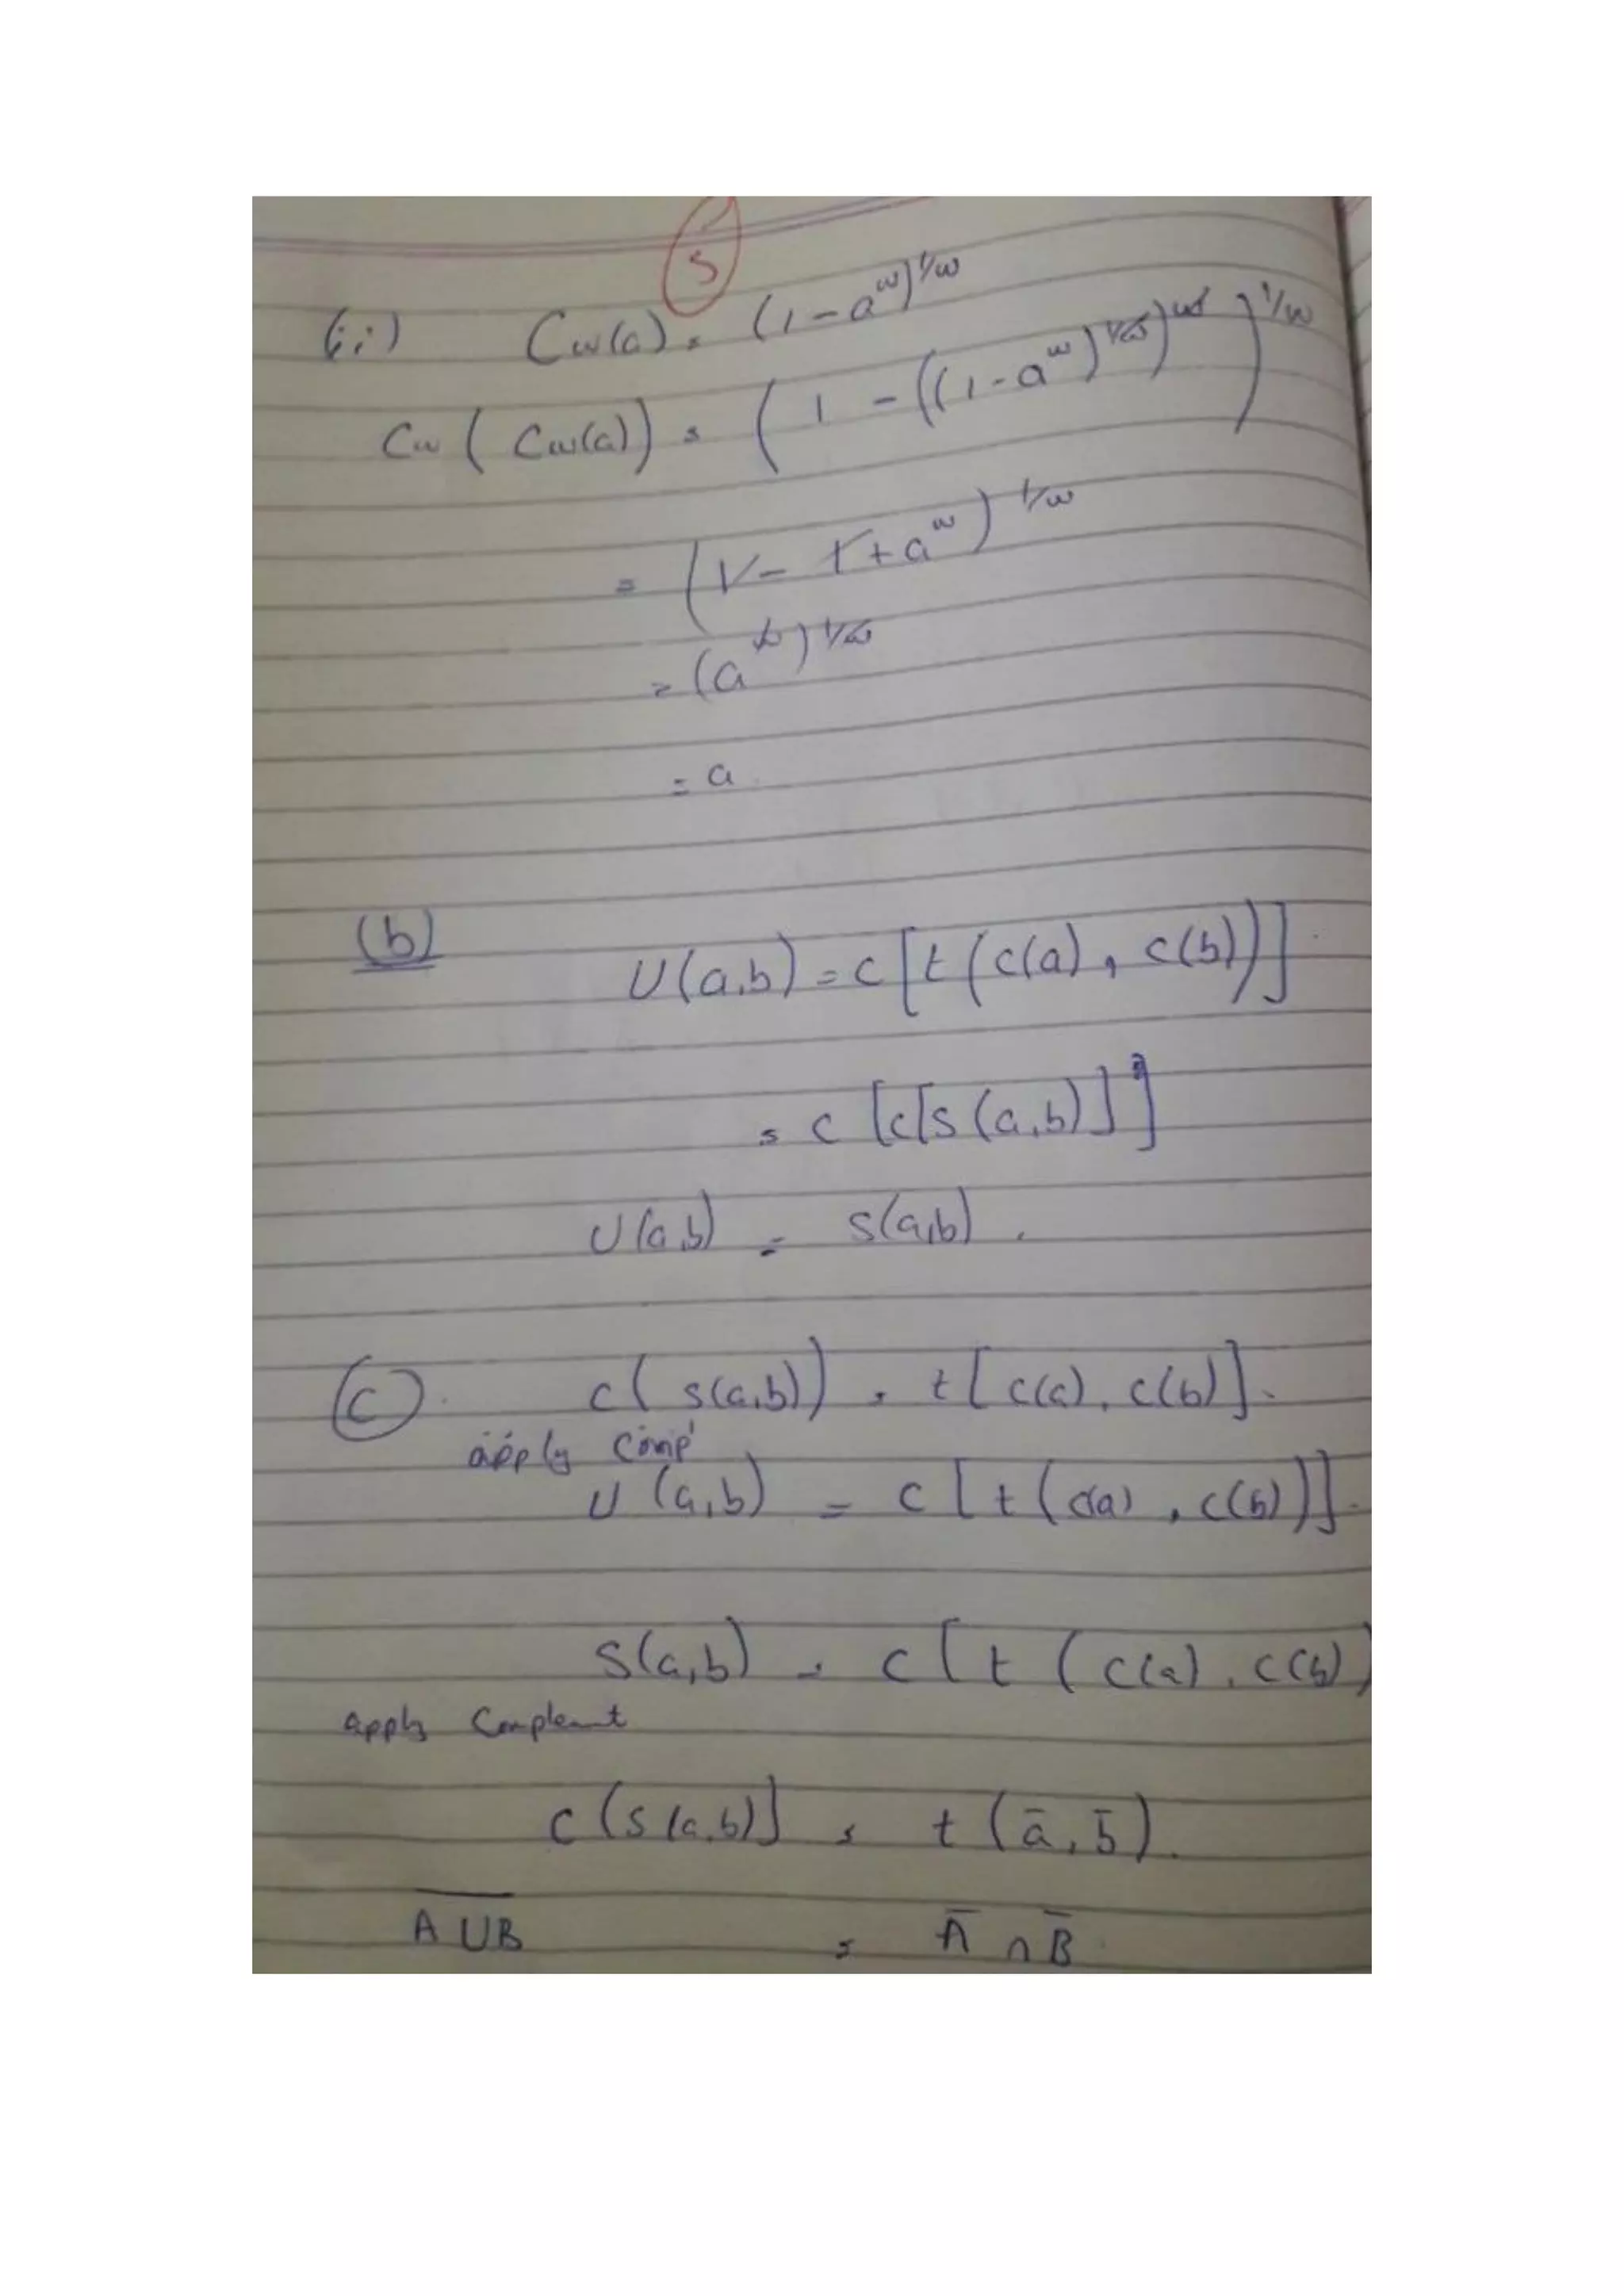 5
(ii) Cw(a) = (1-a^w)^1/w
Cw(Cw(a)) = (1 - ((1-a^w)^1/w)^w)^1/w
= (1 - 1 + a^w)^1/w
= (a^w)^1/w
= a
(b) U(a,b) = c[t(c(a), c(b))]
= c[c[s(a,b)]]
U(a,b) = s(a,b).
(c) c(s(a,b)) = t[c(a), c(b)].
apply comp'
U(a,b) = c[t(c(a), c(b))].
S(a,b) = c[t(c(a), c(b)
apply Complemt
c(s(a,b)] = t(a̅, b̅).
A̅ ̅U̅ ̅B̅ = A̅ ∩ B̅